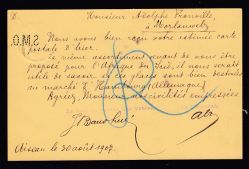 D. Monsieur Adolphe Frouville,
à Morlanwelz
Nous avons bien reçu votre estimée carte
postale d'hier.
Le même assortiment venant de nous être
proposé pour l'Afrique du Sud, il nous serait
utile de savoir si ces glaces sont bien destinées
au marché d'Hambourg (Allemagne)
Agréez, Monsieur, nos civilités empressées
Aiseau le 30 août 1907.